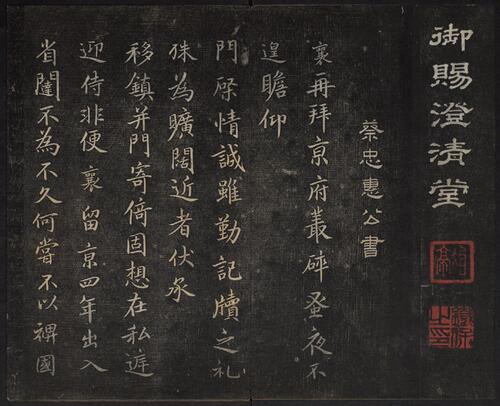 御賜澄清堂
蔡忠惠公書
襄再拜京府叢碎蚤夜不
遑瞻仰
門屏情誠雖勤記牘之礼
殊為曠闊近者伏承
移鎮并門寄倚固想在私
迎侍非便襄留京四年出入
省闥不為不久何嘗不以裨國